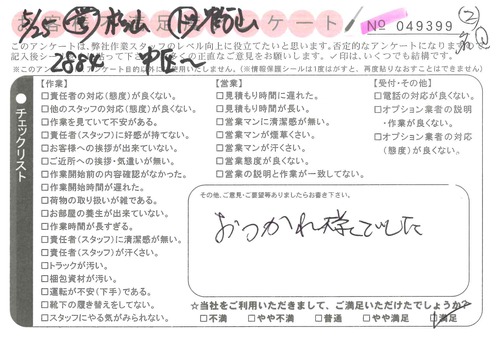 5/25 営 松山
アンケート No 049399
このアンケートは、弊社作業スタッフのレベル向上に役立てたいと思います。否定的なアンケートになりま
2884
✓印は、いくつでも結構です。
【作業】
□責任者の対応(態度)が良くない。
□他のスタッフの対応(態度)が良くない。
□作業を見ていて不安がある。
□責任者(スタッフ)に好感が持てない。
□お客様への挨拶が出来ていない。
□ご近所への挨拶・気遣いが無い。
□作業開始前の内容確認がなかった。
□作業開始時間が遅れた。
□荷物の取り扱いが雑である。
□お部屋の養生が出来ていない。
□作業時間が長すぎる。
□責任者(スタッフ)に清潔感が無い。
□責任者(スタッフ)が汗くさい。
□トラックが汚い。
□梱包資材が汚い。
□運転が不安(下手)である。
□靴下の履き替えをしてない。
□スタッフにやる気がみられない。
【営業】
□見積もり時間に遅れた。
□見積もり時間が長い。
□営業マンに清潔感が無い。
□営業マンが煙草くさい。
□営業マンが汗くさい。
□営業態度が良くない。
□営業の説明と作業が一致してない。
【受付・その他】
□電話の対応が良くない。
□オプション業者の説明
・作業が良くない。
□オプション業者の対応
(態度)が良くない。
チェックリスト
その他、ご意見・ご要望等ありましたらお書き下さい。
おつかれ様でした
☆当社をご利用いただきまして、ご満足いただけたでしょうか?
□不満 □やや不満 □普通 □やや満足 □満足